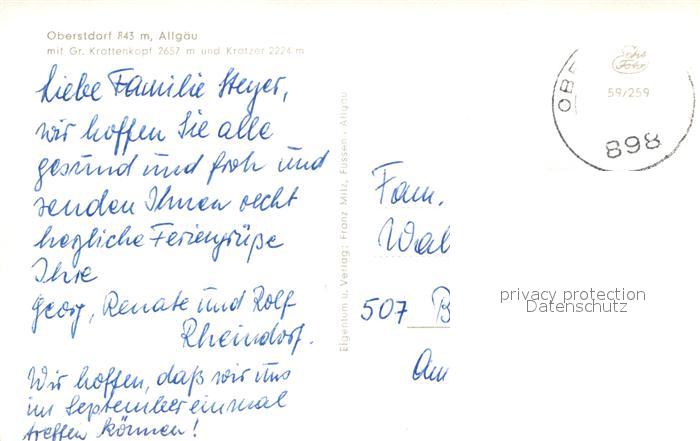 Oberstdorf 843 m, Allgäu
mit Gr. Krottenkopf 2657 m und Kratzer 2224 m
Liebe Familie Heyer,
wir hoffen Sie alle
gesund und froh und
senden Ihnen recht
herzliche Feriengrüße
Ihre
Georg, Renate und Rolf
Rheindorf.
Wir hoffen, daß wir uns
im September einmal
treffen können!
Eigentum u. Verlag: Franz Milz, Füssen, Allgäu
Fam.
Wal
507 B
Am
OBE
59/259
898
privacy protection
Datenschutz